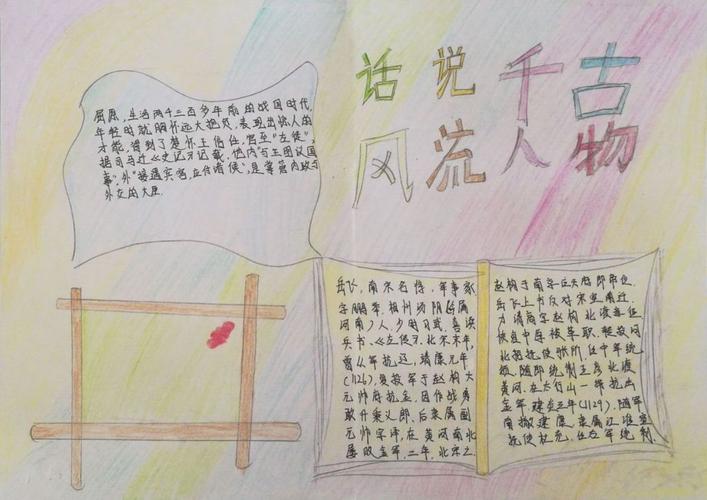 话说千古
风流人物
屈原，生活两千三百多年前的战国时代，
年轻时就胸怀远大抱负，表现出惊人的
才能，得到了楚怀王信任，官至"左徒"，
据司马迁《史记》记载，他内"与王图议国
事"，外"接遇宾客，应付诸侯"，是掌管内政与
外交的大臣
岳飞，南宋名将，军事家
字鹏举，相州汤阴（今属
河南）人，少时习武，喜读
兵书、《左传》，北宋末年，
曾从军抗辽，靖康元年
（1126），复投军于赵构大
元帅府抗金，因作战勇
敢升秉义郎，后隶属副
元帅宗泽，在黄河南北
屡败金军，二年，北宋亡
赵构于南京应天府即帝位
岳飞上书反对宋室南迁，
力请高宗赵构北渡亲征
恢复中原被革职，
北招抚使张所，任中军统
领，随都统制王彦北渡
黄河，在太行山一带抗击
金军，建炎三年（1129），随军
南撤建康，隶属江淮宣
抚使杜充，任右军统制，